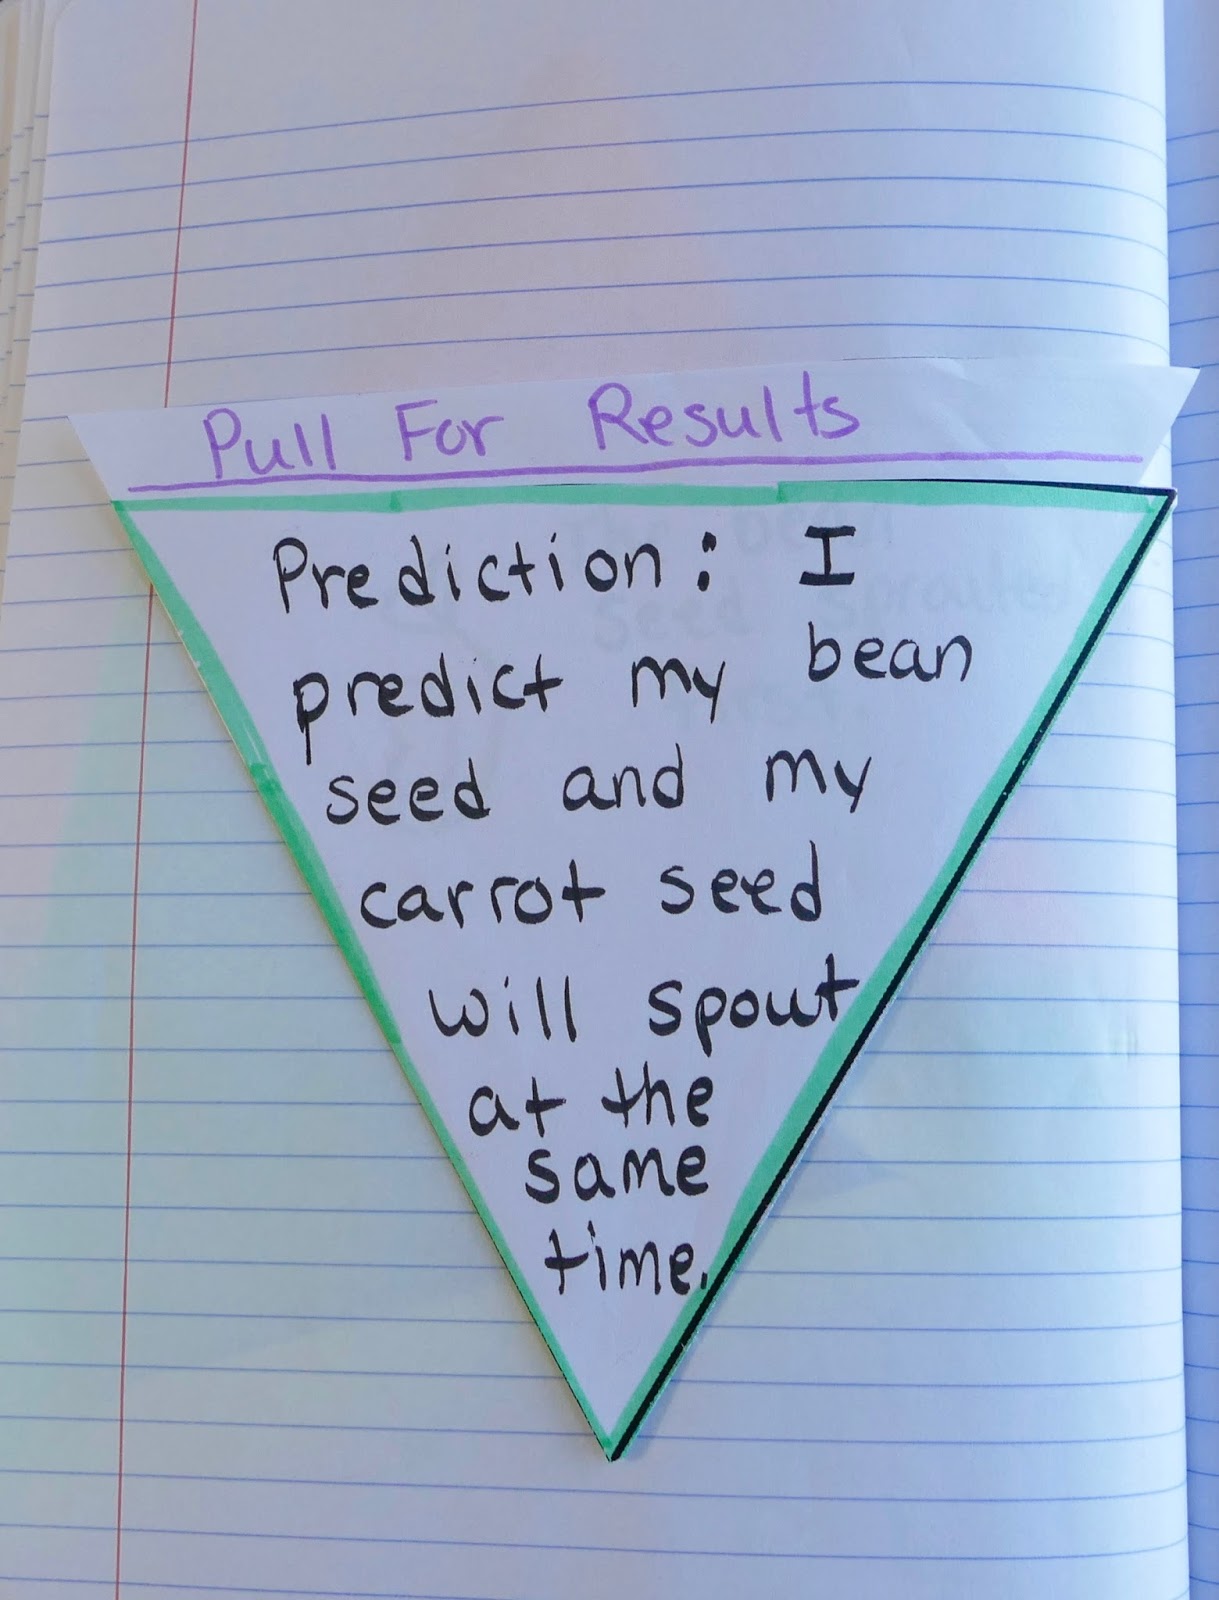 Pull For Results
Prediction: I
predict my bean
seed and my
carrot seed
will spout
at the
same
time.
the bean
seed sprouted